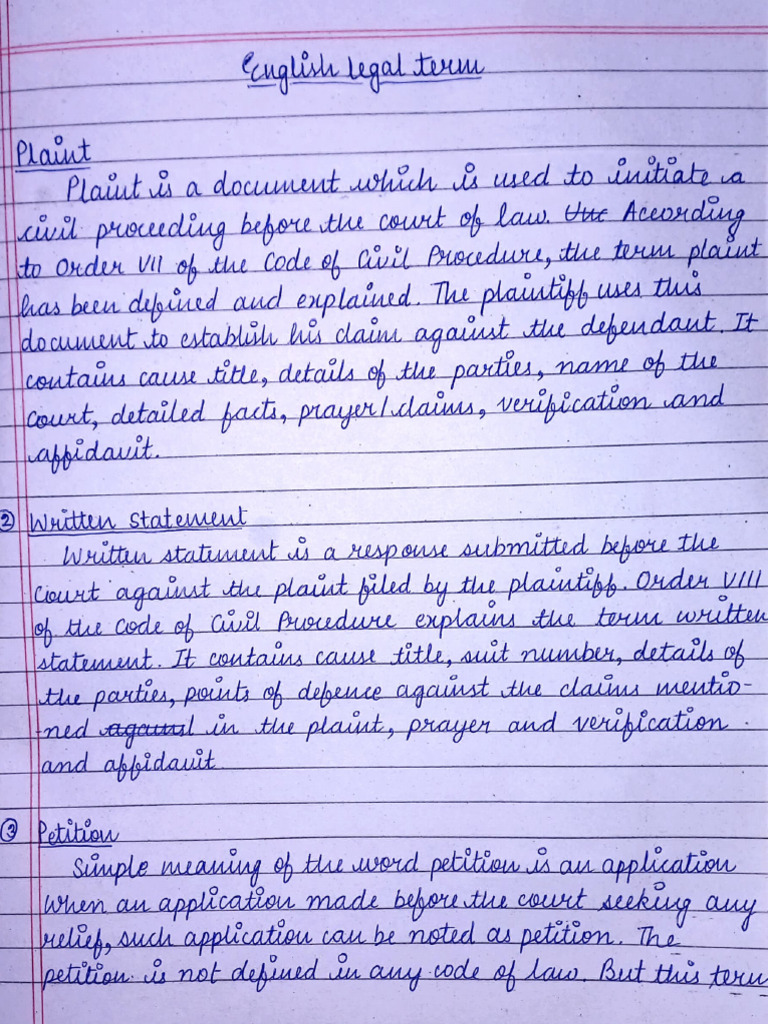 English legal term
Plaint
Plaint is a document which is used to initiate a
civil proceeding before the court of law. the According
to Order VII of the Code of Civil Procedure, the term plaint
has been defined and explained. The plaintiff uses this
document to establish his claim against the defendant. It
contains cause title, details of the parties, name of the
court, detailed facts, prayer/claims, verification and
affidavit.
② Written statement
Written statement is a response submitted before the
Court against the plaint filed by the plaintiff. Order VIII
of the Code of Civil Procedure explains the term written
statement. It contains cause title, suit number, details of
the parties, points of defence against the claims mentio-
ned against in the plaint, prayer and verification.
and affidavit
③ Petition
Simple meaning of the word petition is an application
When an application made before the court seeking any
relief, such application can be noted as petition. The
petition is not defined in any code of law. But this term